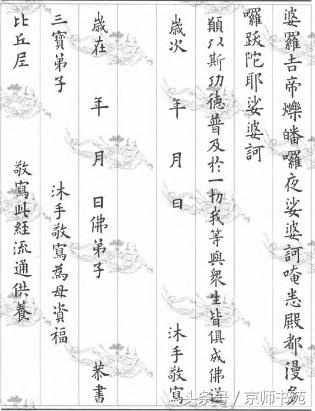 婆羅吉帝爍皤囉夜娑婆訶唵悉殿都漫多
囉跋陀耶娑婆訶
願以斯功德普及於一切我等與衆生皆俱成佛道
歲次 年 月 日 沐手敬寫
歲在 年 月 日佛弟子 恭書
三寶弟子 沐手敬寫為母資福
比丘尼 敬寫此經流通供養
头条号 / 京师书苑